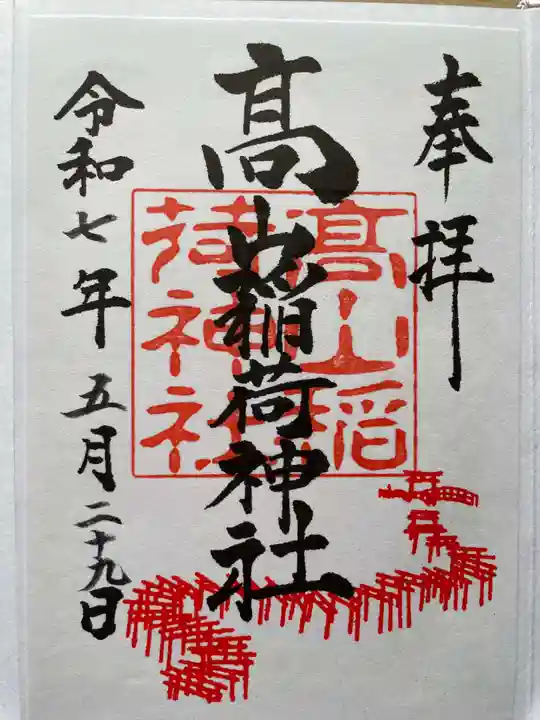 奉拝
髙山稲荷神社
令和七年五月二十九日
髙山稲
荷神社